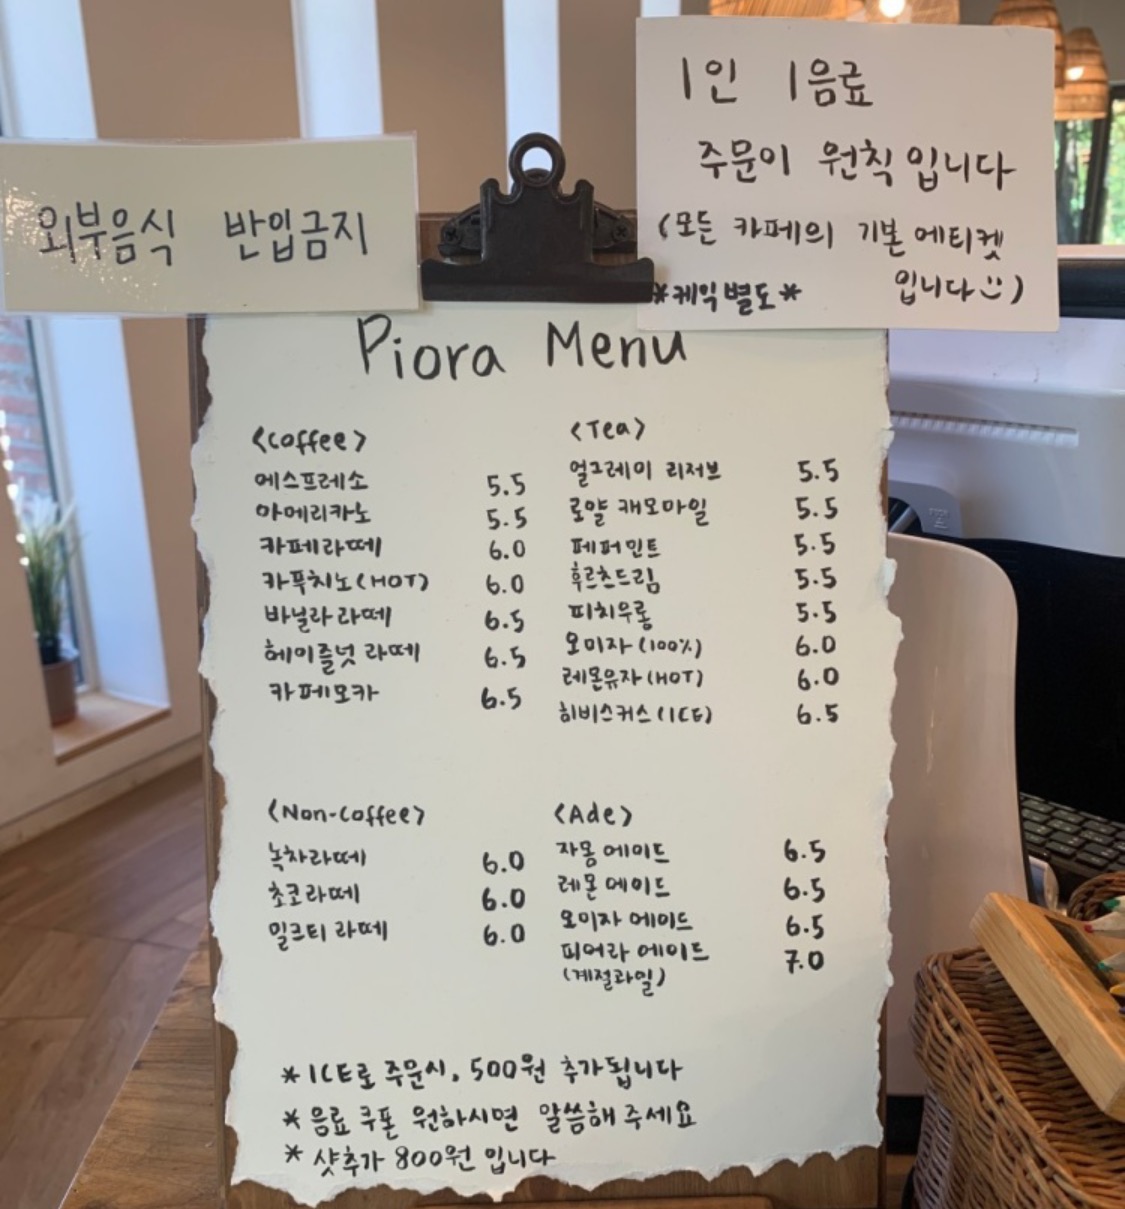 외부음식 반입금지
1인 1음료
주문이 원칙입니다
(모든 카페의 기본에티켓
입니다 :))
*케익별도*
Piora Menu
<Coffee>
에스프레소 5.5
아메리카노 5.5
카페라떼 6.0
카푸치노(HOT) 6.0
바닐라라떼 6.5
헤이즐넛 라떼 6.5
카페모카 6.5
<Tea>
얼그레이 리저브 5.5
로얄 캐모마일 5.5
페퍼민트 5.5
후르츠드림 5.5
피치우롱 5.5
오미자(100%) 6.0
레몬유자(HOT) 6.0
히비스커스(ICE) 6.5
<Non-Coffee>
녹차라떼 6.0
초코라떼 6.0
밀크티 라떼 6.0
<Ade>
자몽에이드 6.5
레몬에이드 6.5
오미자 에이드 6.5
피어라 에이드 7.0
(계절과일)
*ICE로 주문시, 500원 추가됩니다
*음료 쿠폰 원하시면 말씀해 주세요
*샷추가 800원 입니다